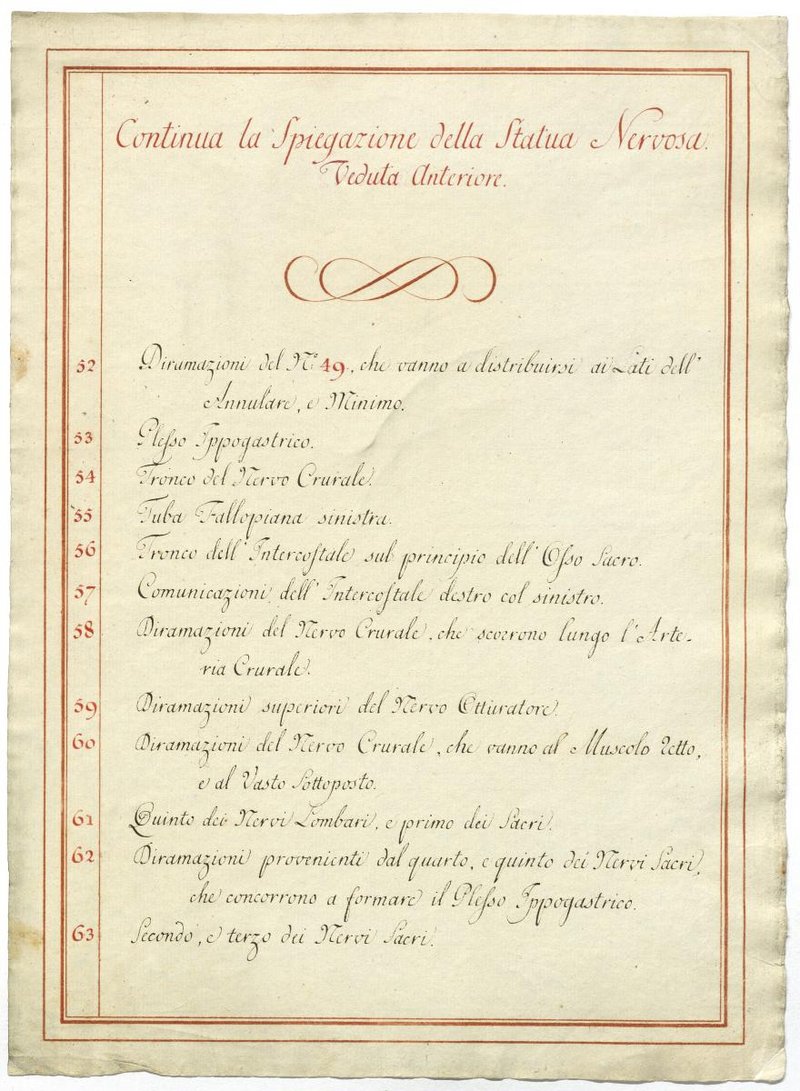 Continua la Spiegazione della Statua Nervosa.
Veduta Anteriore.
52 Diramazioni del N.º 49, che vanno a distribuirsi ai Lati dell'
Annulare, e Minimo.
53 Plesso Ippogastrico.
54 Tronco del Nervo Crurale.
55 Tuba Fallopiana sinistra.
56 Tronco dell'Intercostale sul principio dell'Osso Sacro.
57 Comunicazioni dell'Intercostale destro col sinistro.
58 Diramazioni del Nervo Crurale, che scorrono lungo l'Arte-
ria Crurale.
59 Diramazioni superiori del Nervo Otturatore.
60 Diramazioni del Nervo Crurale, che vanno al Muscolo Retto,
e al Vasto Sottoposto.
61 Quinto dei Nervi Lombari, e primo dei Sacri.
62 Diramazioni provenienti dal quarto, e quinto dei Nervi Sacri,
che concorrono a formare il Plesso Ippogastrico.
63 Secondo, e terzo dei Nervi Sacri.